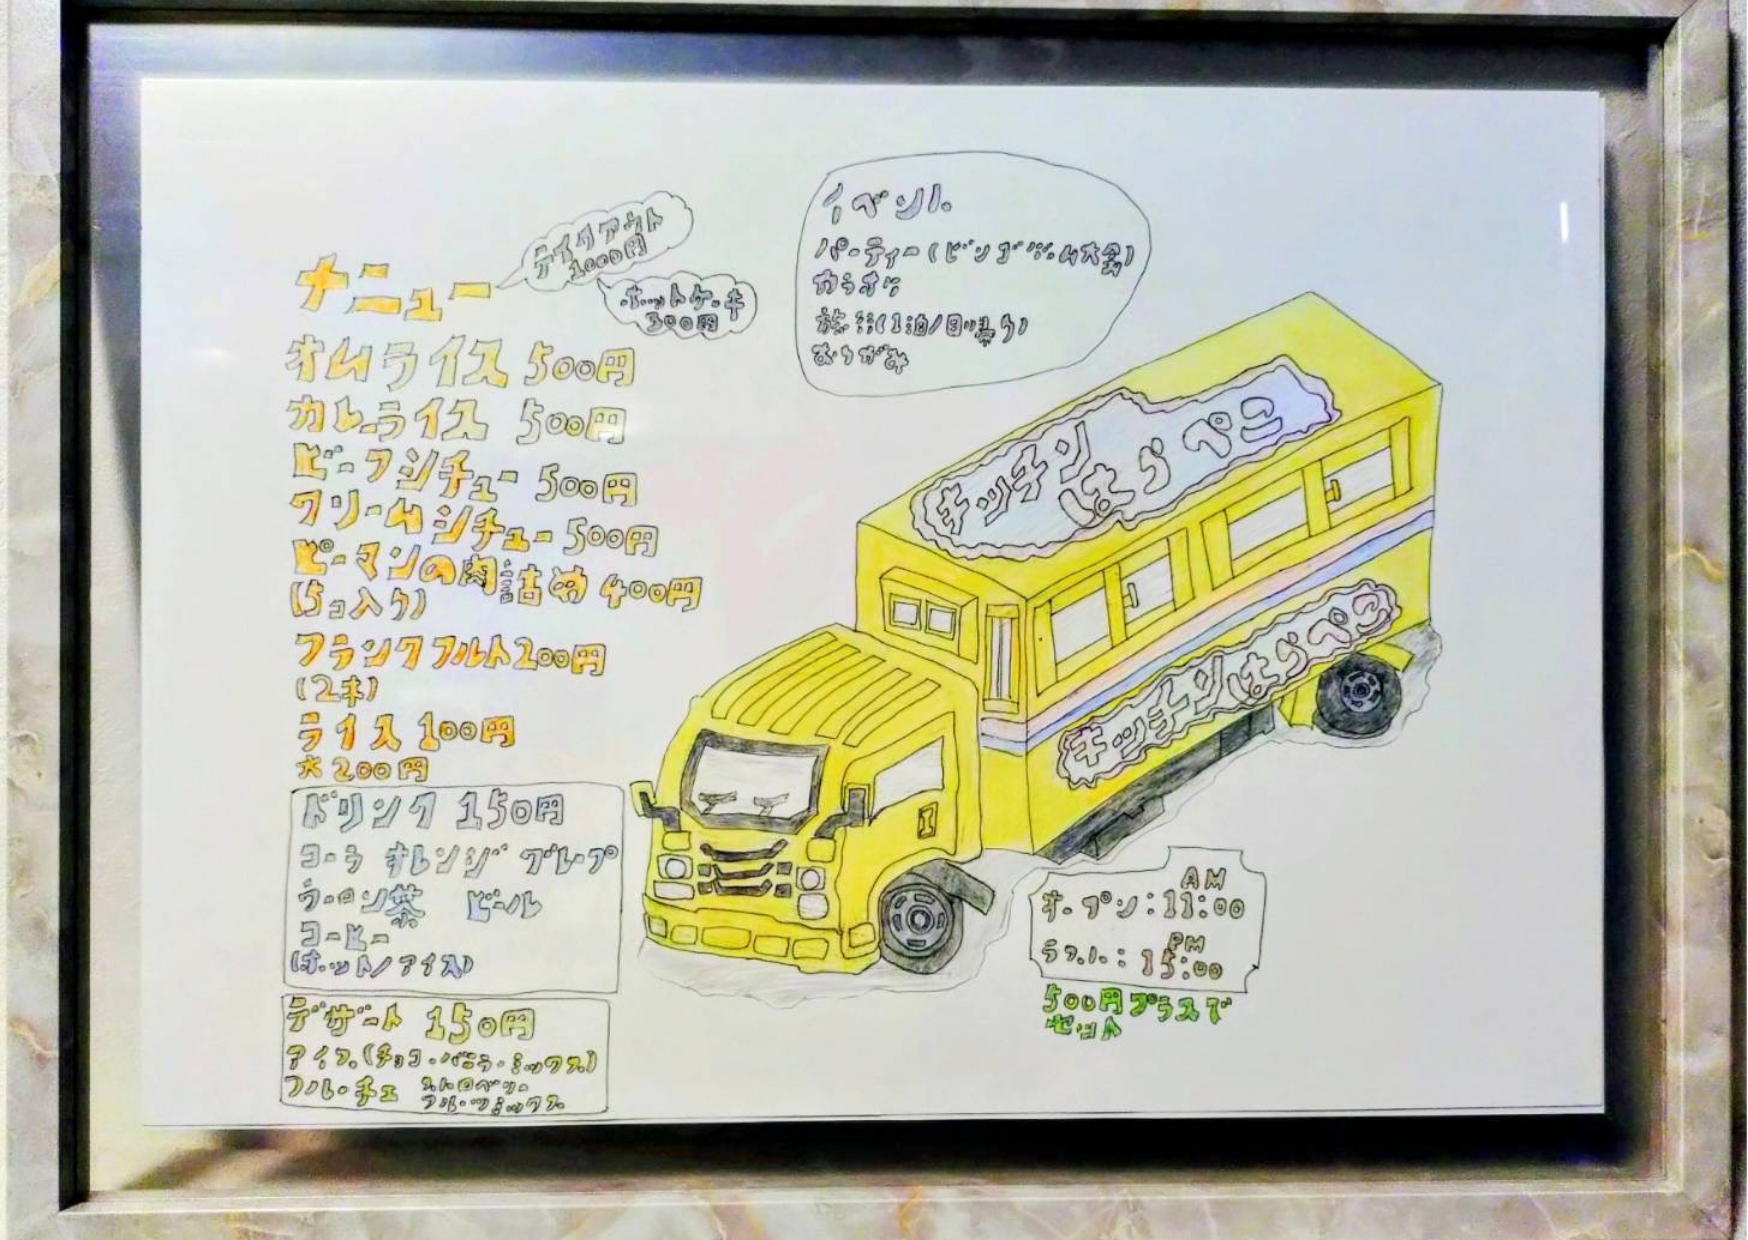 メニュー
テイクアウト
1000円
ホットケーキ
300円
オムライス 500円
カレーライス 500円
ビーフシチュー 500円
クリームシチュー 500円
ピーマンの肉詰め 400円
(5コ入り)
フランクフルト200円
(2本)
ライス 100円
水 200円
ドリンク 150円
コーラ オレンジ グレープ
ウーロン茶 ビール
コーヒー
(ホット/アイス)
デザート 150円
アイス(チョコ・バニラ・ミックス)
フルーチェ ストロベリー
フルーツミックス
イベント
パーティー(ビンゴゲーム大会)
カラオケ
旅行(1泊/日帰り)
おりがみ
キッチン
はらぺこ
キッチンはらぺこ
AM
オープン:11:00
PM
ラスト:15:00
500円プラスで
セット